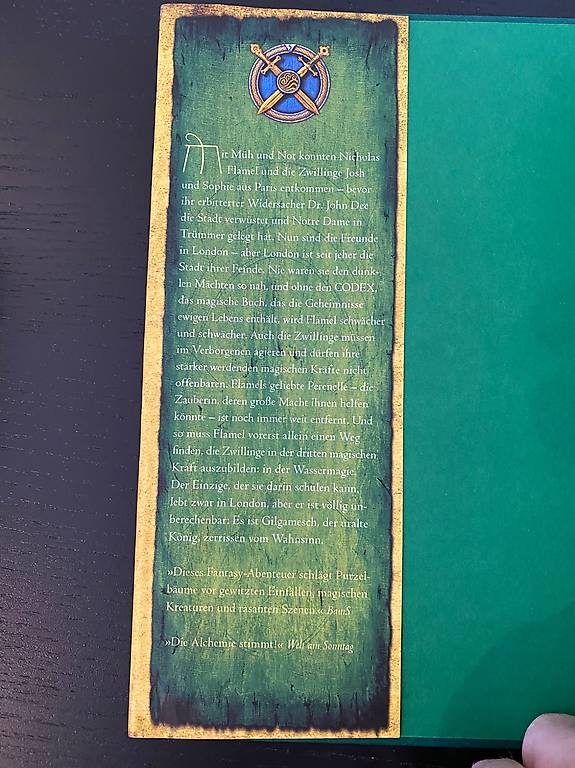 Mit Müh und Not konnten Nicholas
Flamel und die Zwillinge Josh
und Sophie aus Paris entkommen – bevor
ihr erbitterter Widersacher Dr. John Dee
die Stadt verwüstet und Notre Dame in
Trümmer gelegt hat. Nun sind die Freunde
in London – aber London ist seit jeher die
Stadt ihrer Feinde. Nie waren sie den dunk-
len Mächten so nah, und ohne den CODEX,
das magische Buch, das die Geheimnisse
ewigen Lebens enthält, wird Flamel schwächer
und schwächer. Auch die Zwillinge müssen
im Verborgenen agieren und dürfen ihre
stärker werdenden magischen Kräfte nicht
offenbaren. Flamels geliebte Perenelle – die
Zauberin, deren große Macht ihnen helfen
könnte – ist noch immer weit entfernt. Und
so muss Flamel vorerst allein einen Weg
finden, die Zwillinge in der dritten magischen
Kraft auszubilden: in der Wassermagie.
Der Einzige, der sie darin schulen kann,
lebt zwar in London, aber er ist völlig un-
berechenbar: Es ist Gilgamesch, der uralte
König, zerrissen vom Wahnsinn.
»Dieses Fantasy-Abenteuer schlägt Purzel-
bäume vor gewitzten Einfällen, magischen
Kreaturen und rasanten Szenen.« BamS
»Die Alchemie stimmt!« Welt am Sonntag